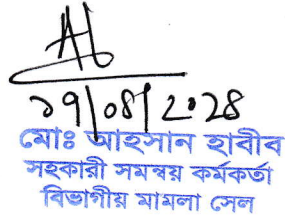 ১৭/০৪/২০২৪
মোঃ আহসান হাবীব
সহকারী সমন্বয় কর্মকর্তা
বিভাগীয় মামলা সেল